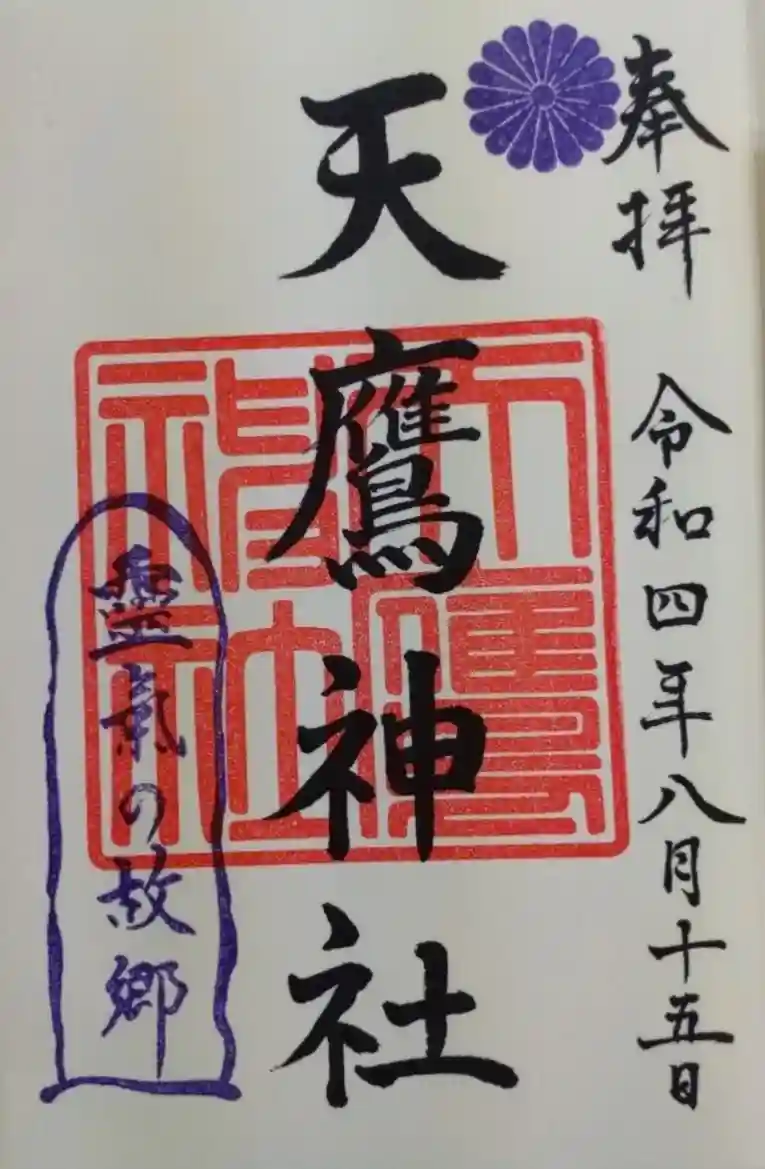 奉拝 令和四年八月十五日
天鷹神社
天鷹神社
霊氣の故郷